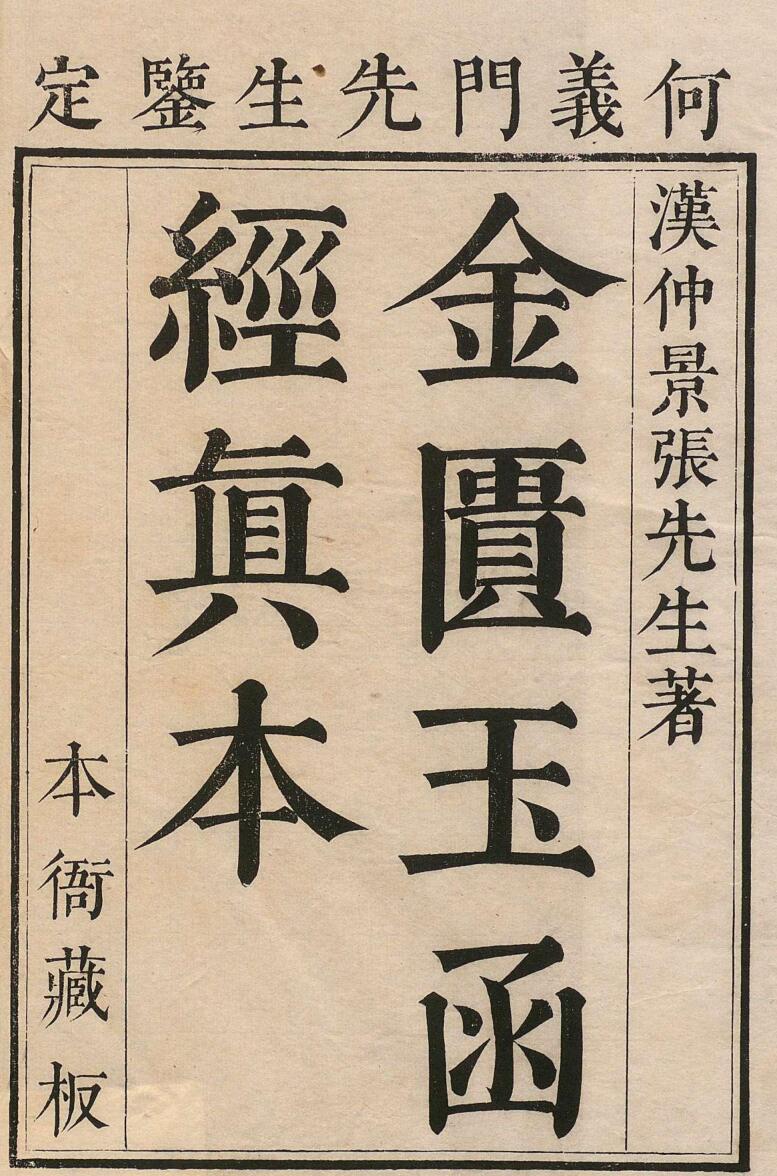 何義門先生鑒定
漢仲景張先生著
金匱玉函
經眞本
本衙藏板